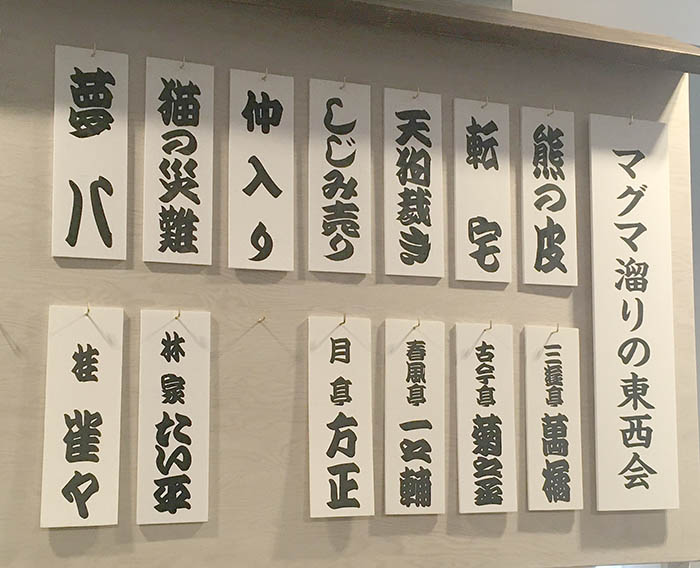 マグマ溜りの東西会
熊の皮
転宅
天狗裁き
しじみ売り
仲入り
猫の災難
夢八
三遊亭 萬橘
古今亭 菊之丞
春風亭 一之輔
月亭 方正
林家 たい平
桂 雀々